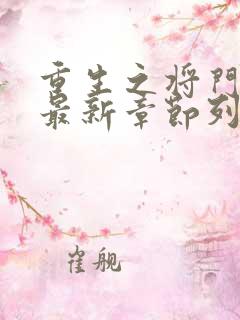 重生之将门
最新章节列
崔舰